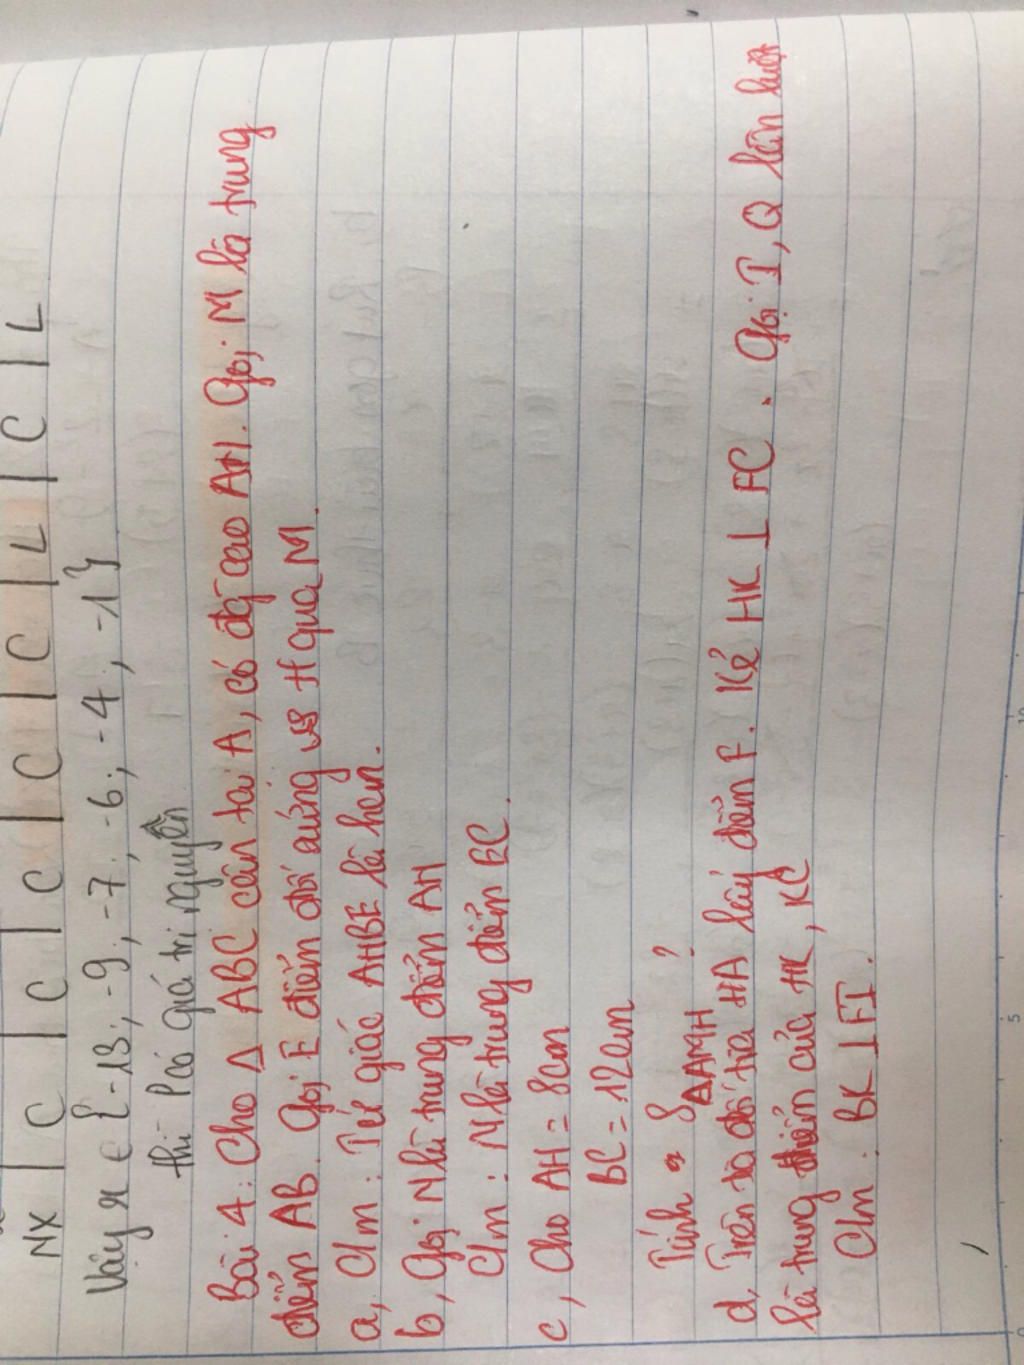 NX | C | C | C | C | C | L | C | L
Vậy x ∈ {-13; -9; -7; -6; -4; -1}
thì P có giá trị nguyên
Bài 4: Cho Δ ABC cân tại A, có độ cao AH. Gọi M là trung
điểm AB. Gọi E điểm đối xứng vs H qua M.
a, C/m: Tứ giác AHBE là hcn.
b, Gọi N là trung điểm AH
C/m: N là trung điểm EC.
c, Cho AH = 8cm
BC = 12cm
Tính S ΔAMH ?
d, Trên tia đối tia HA lấy điểm F. Kẻ HK ⊥ FC. Gọi I, Q lần lượt
là trung điểm của HK, KC
C/m: BK ⊥ FI.